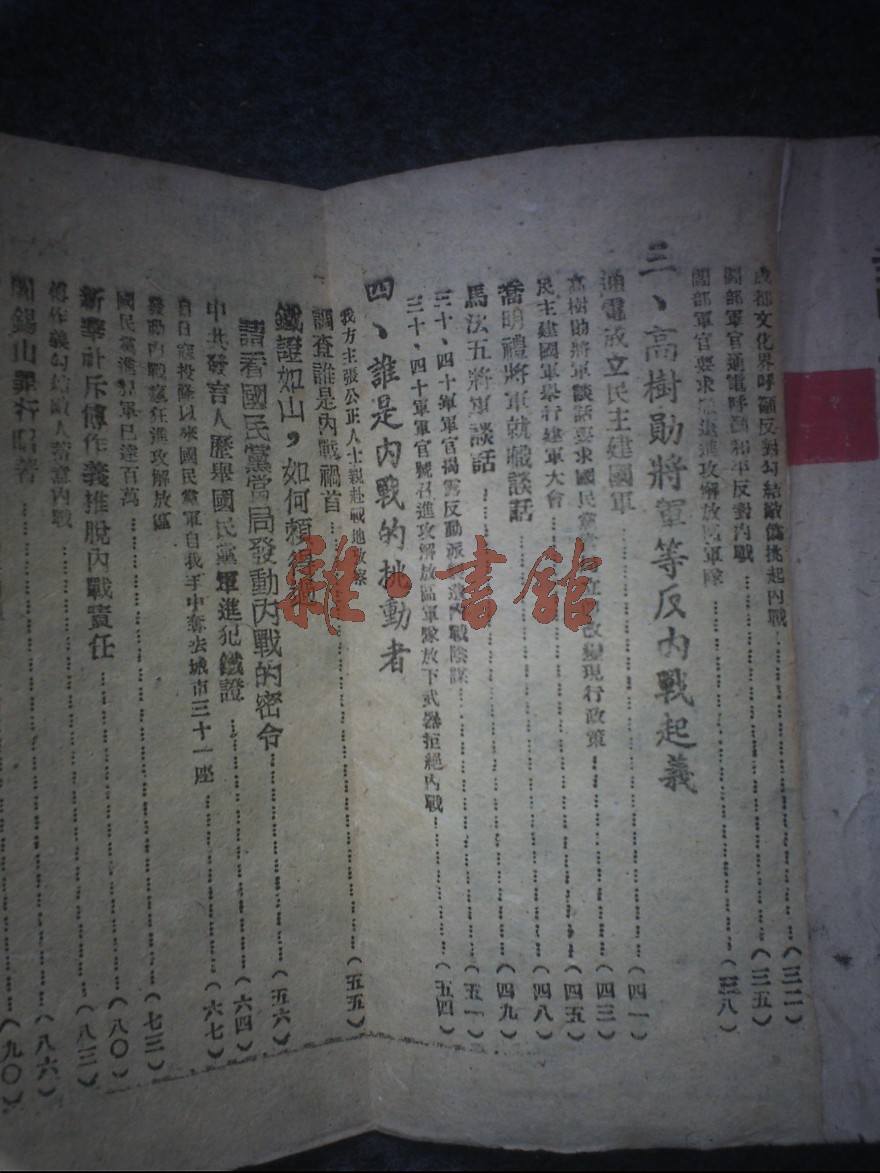 成都文化界呼籲反對勾結敵偽挑起內戰……（三二）
閻部軍官通電呼籲和平反對內戰……（三五）
閻部軍官要求 進攻解放區軍隊……（三八）
三、高樹勛將軍等反內戰起義
通電成立民主建國軍……（四一）
高樹勛將軍談話要求國民黨 改變現行政策……（四三）
民主建國軍舉行建軍大會……（四五）
喬明禮將軍就職談話……（四八）
馬法五將軍談話……（四九）
三十、四十軍軍官揭露反動派 內戰陰謀……（五一）
三十、四十軍軍官號召進攻解放區軍隊放下武器拒絕內戰……（五四）
四、誰是內戰的挑動者
我方主張公正人士親赴戰地 察
調查誰是內戰禍首……（五五）
鐵證如山，如何賴得
請看國民黨當局發動內戰的密令……（五六）
中共發言人歷舉國民黨軍進犯鐵證……（六四）
自日寇投降以來國民黨軍自我手中奪去城市三十一座……（六七）
發動內戰瘋狂進攻解放區
國民黨進犯軍已達百萬……（七三）
新華社斥傅作義推脫內戰責任……（八〇）
傅作義勾結敵人蓄意內戰……（八三）
閻錫山罪行昭著……（八六）
（九〇）
雜·書館